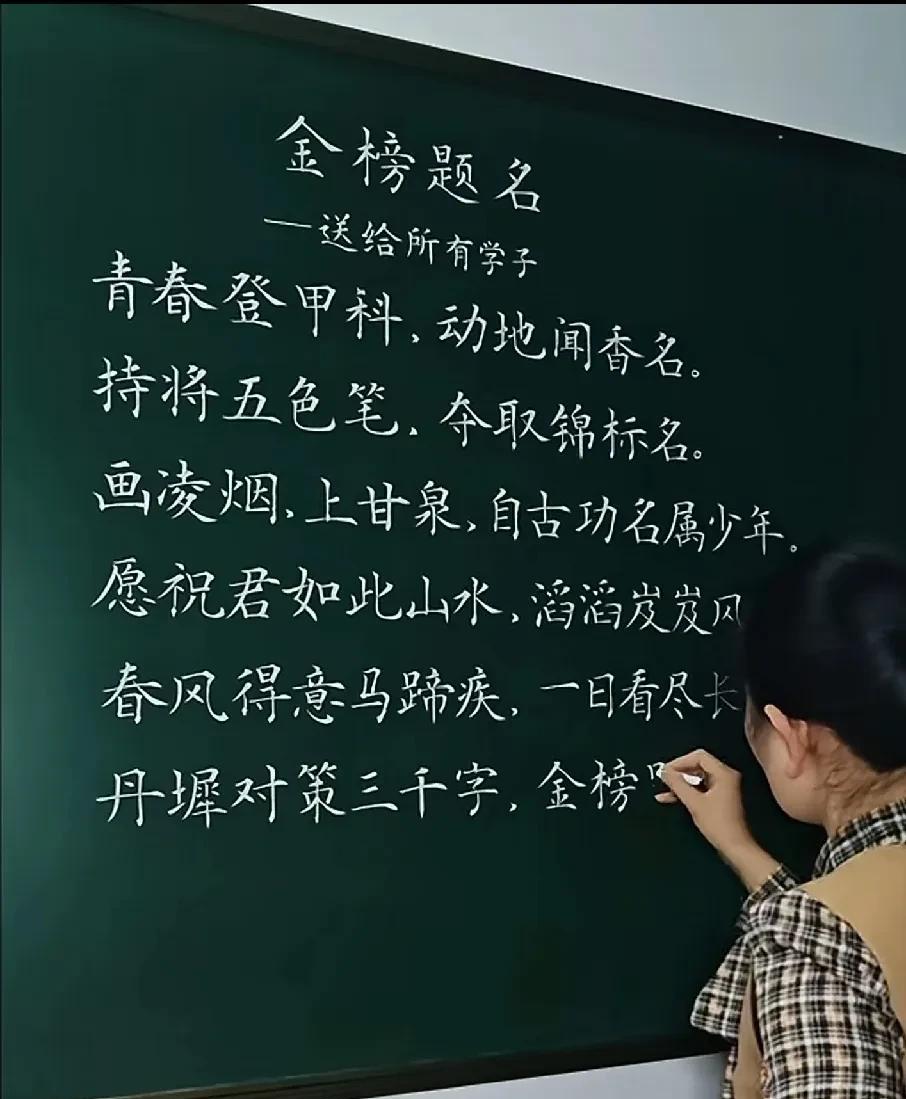 金榜题名
一送给所有学子
青春登甲科，动地闻香名。
持将五色笔，夺取锦标名。
画凌烟，上甘泉，自古功名属少年。
愿祝君如此山水，滔滔岌岌风
春风得意马蹄疾，一日看尽长
丹墀对策三千字，金榜